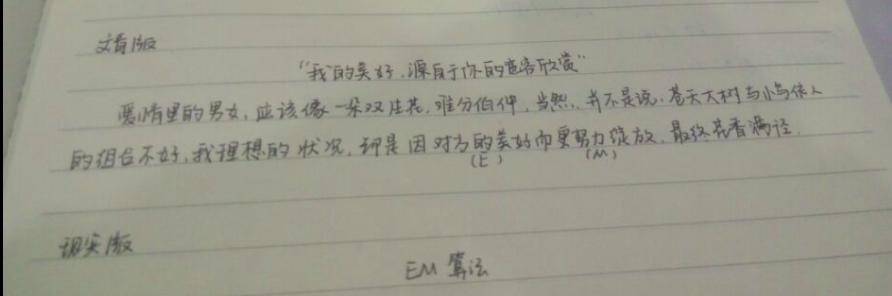 文青版
"我的美好,源自于你的包容欣赏"
爱情里的男女,应该像一朵双生花,难分伯仲,当然,并不是说,苍天大树与小鸟依人
的组合不好,我理想的状况,却是因对方的美好而更努力绽放,最终花香满径.
(E) (M)
现实版
EM 算法